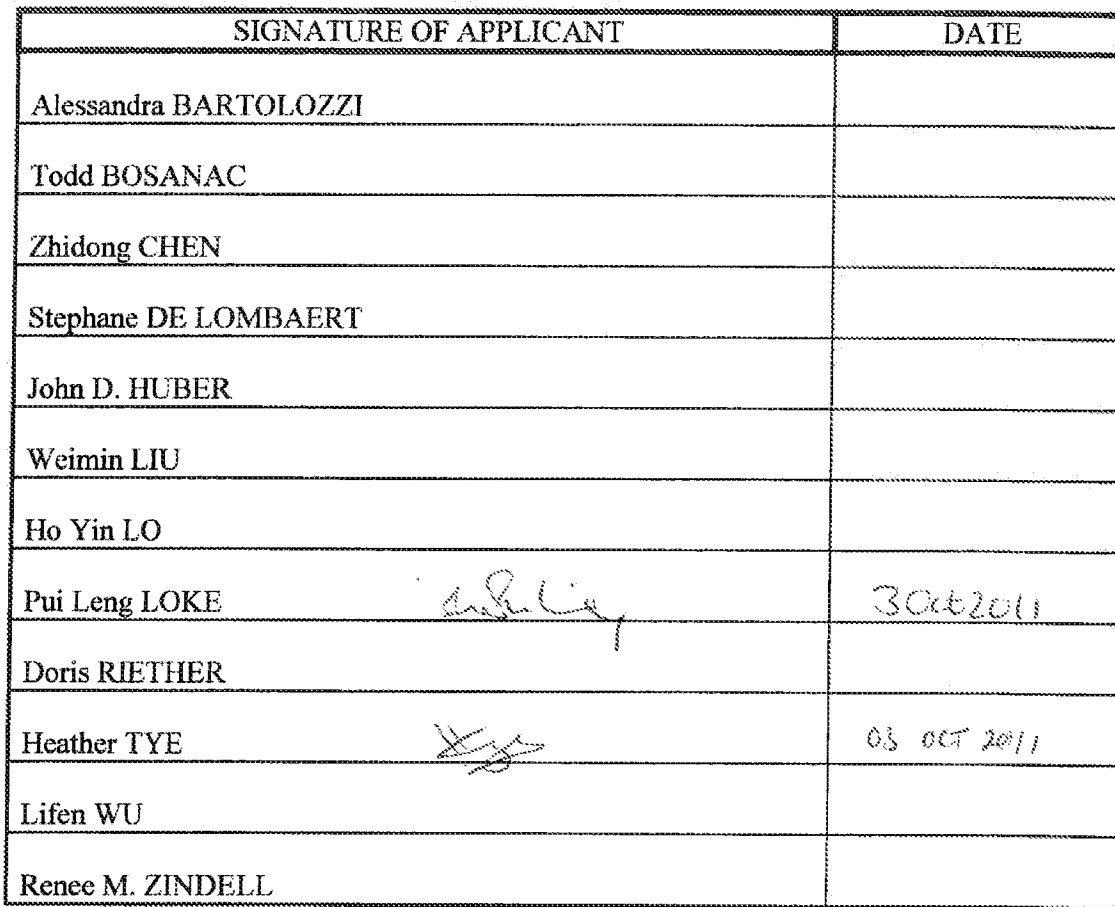 SIGNATURE OF APPLICANT DATE
Alessandra BARTOLOZZI
Todd BOSANAC
Zhidong CHEN
Stephane DE LOMBAERT
John D. HUBER
Weimin LIU
Ho Yin LO
Pui Leng LOKE 3 Oct 2011
Doris RIETHER
Heather TYE 03 OCT 2011
Lifen WU
Renee M. ZINDELL